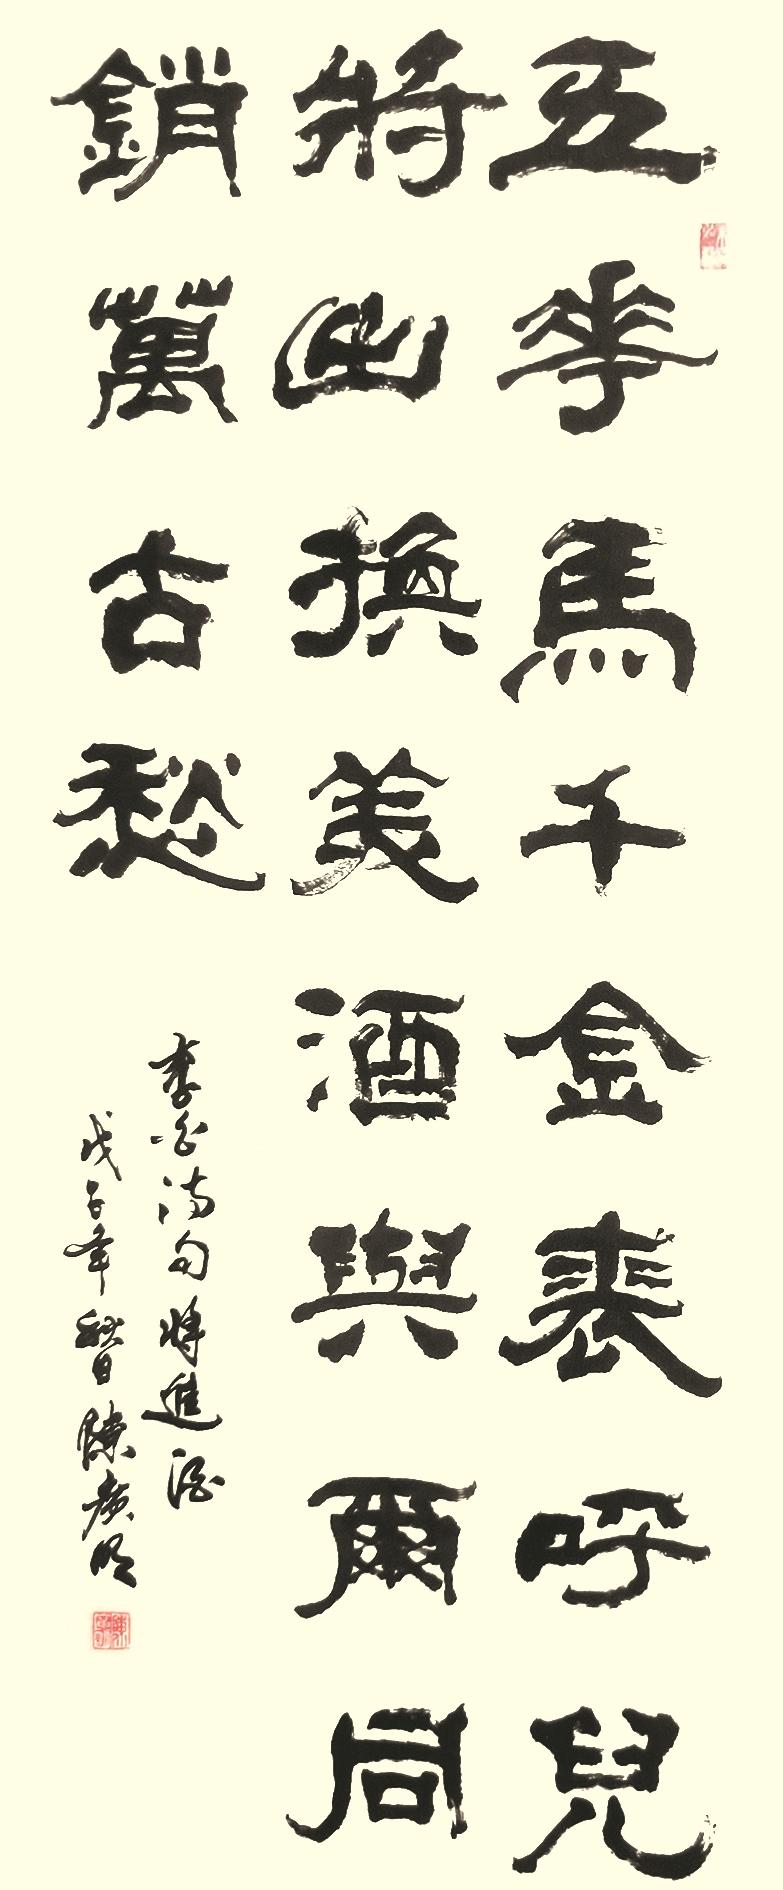 五花馬千金裘呼兒
將出換美酒與爾同
銷萬古愁
李白詩句將進酒
戊子年秋日陳廣明